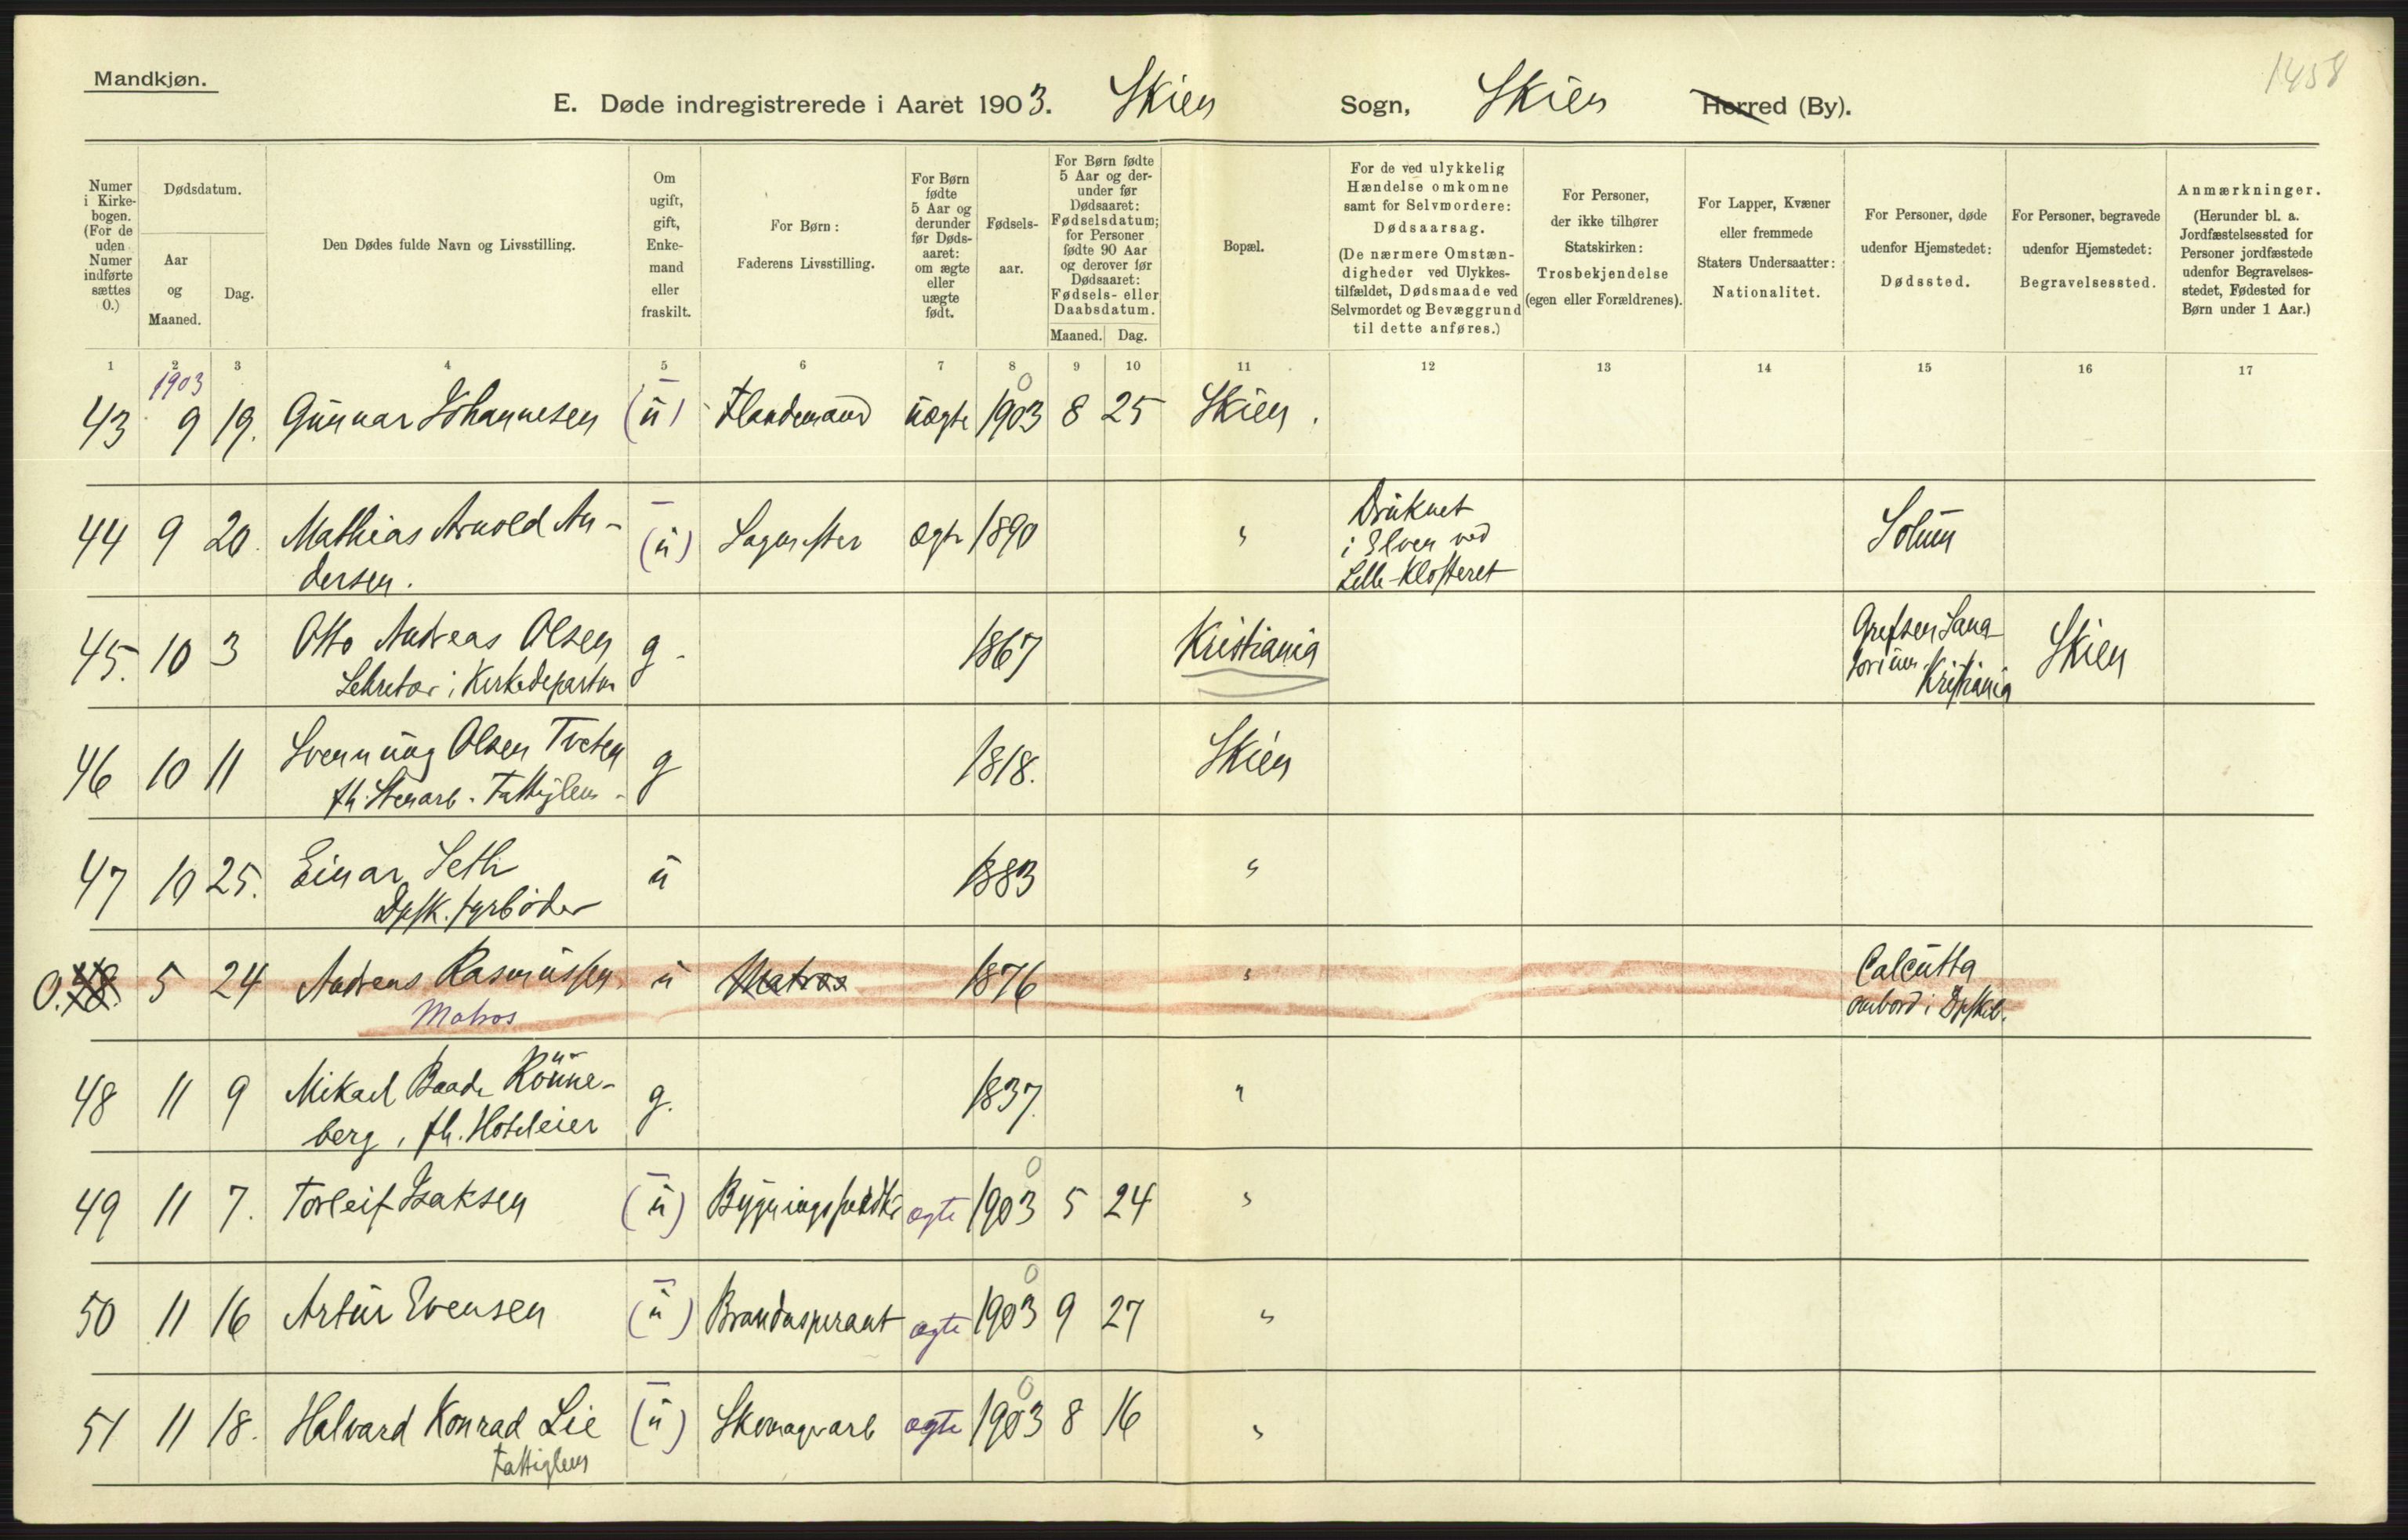 1458
Mandkjøn.
E. Døde indregistrerede i Aaret 1903. Skien Sogn, Skien Herred (By).
Numer i Kirkebogen. (For de uden Numer indførte sættes 0.)
Dødsdatum.
Aar og Maaned.
Dag.
Den Dødes fulde Navn og Livsstilling.
Om ugift, gift, Enkemand eller fraskilt.
For Børn: Faderens Livsstilling.
For Børn fødte 5 Aar og derunder før Dødsaaret: om ægte eller uægte født.
Fødselsaar.
For Børn fødte 5 Aar og derunder før Dødsaaret: Fødselsdatum; for Personer fødte 90 Aar og derover før Dødsaaret: Fødsels- eller Daabsdatum.
Maaned. Dag.
Bopæl.
For de ved ulykkelig Hændelse omkomne samt for Selvmordere: Dødsaarsag. (De nærmere Omstændigheder ved Ulykkestilfældet, Dødsmaade ved Selvmordet og Bevæggrund til dette anføres.)
For Personer, der ikke tilhører Statskirken: Trosbekjendelse (egen eller Forældrenes).
For Lapper, Kvæner eller fremmede Staters Undersaatter: Nationalitet.
For Personer, døde udenfor Hjemstedet: Dødssted.
For Personer, begravede udenfor Hjemstedet: Begravelsessted.
Anmærkninger. (Herunder bl. a. Jordfæstelsessted for Personer jordfæstede udenfor Begravelsesstedet, Fødested for Børn under 1 Aar.)
1 2 3 4 5 6 7 8 9 10 11 12 13 14 15 16 17
1903
43 9 19. Gunnar Johannesen (u) uægte 1903 0 8 25 Skien.
44 9 20. Mathias Arnold Andersen. (u) ægte 1890 " Druknet i Elven ved Lille-Klosteret Solum
45. 10 3 Otto Andreas Olsen g. 1867 Kristiania Grefsen Sanatorium Kristiania Skien
Sekretær i Kirkedepartm
46 10 11 Svennung Olsen Tveten g 1818. Skien
fh. Stenarb. Fattiglem.
47 10 25. Einar Seth u 1883 "
Dpsk. fyrbøder
0. 48. 5 24 Andreas Rasmussen u Matros 1876 " Calcutta ombord i Dpskib.
Matros
48 11 9 Mikael Baade Rönneberg, fh. Hoteleier g. 1837. "
49 11 7. Torleif Isaksen (u) ægte 1903 0 5 24 "
50 11 16 Artur Evensen (u) Brandaspirant ægte 1903 0 9 27 "
51 11 18. Halvard Konrad Lie (u) ægte 1903 0 8 16 "
Fattiglem